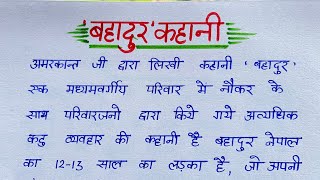 'बहादुर' कहानी
अमरकान्त जी द्वारा लिखी कहानी 'बहादुर'
एक मध्यमवर्गीय परिवार में नौकर के
साथ परिवारजनो द्वारा किये गये अत्यधिक
कटु व्यवहार की कहानी है बहादुर नेपाल
का 12-13 साल का लड़का है, जो अपनी